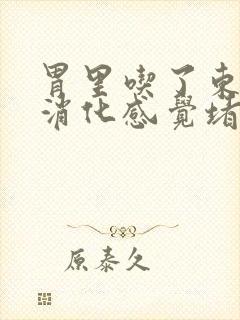 胃里喫了東
消化感覺堵
原泰久